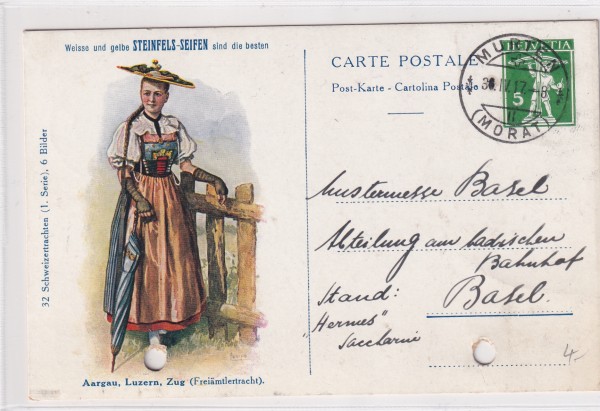 Weisse und gelbe STEINFELS-SEIFEN sind die besten
32 Schweizertrachten (1. Serie), 6 Bilder
Aargau, Luzern, Zug (Freiämtlertracht).
CARTE POSTALE
Post-Karte - Cartolina Postale
HELVETIA
5
MURTEN
30.IV.17-8
(MORAT)
Mustermesse Basel
Abteilung am badischen
Bahnhof
Stand: Basel.
"Hermes"
Saccharin
4-